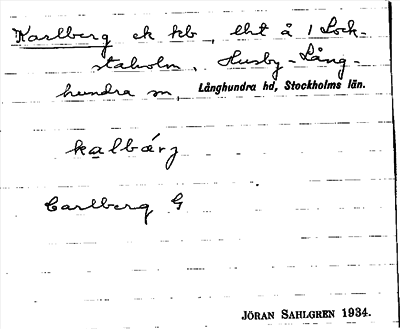 Karlberg ek kb, lht å 1 Lock-
staholm, Husby-Lång-
hundra sn, Långhundra hd, Stockholms län.
kalbárj
Carlberg G
JÖRAN SAHLGREN 1934.